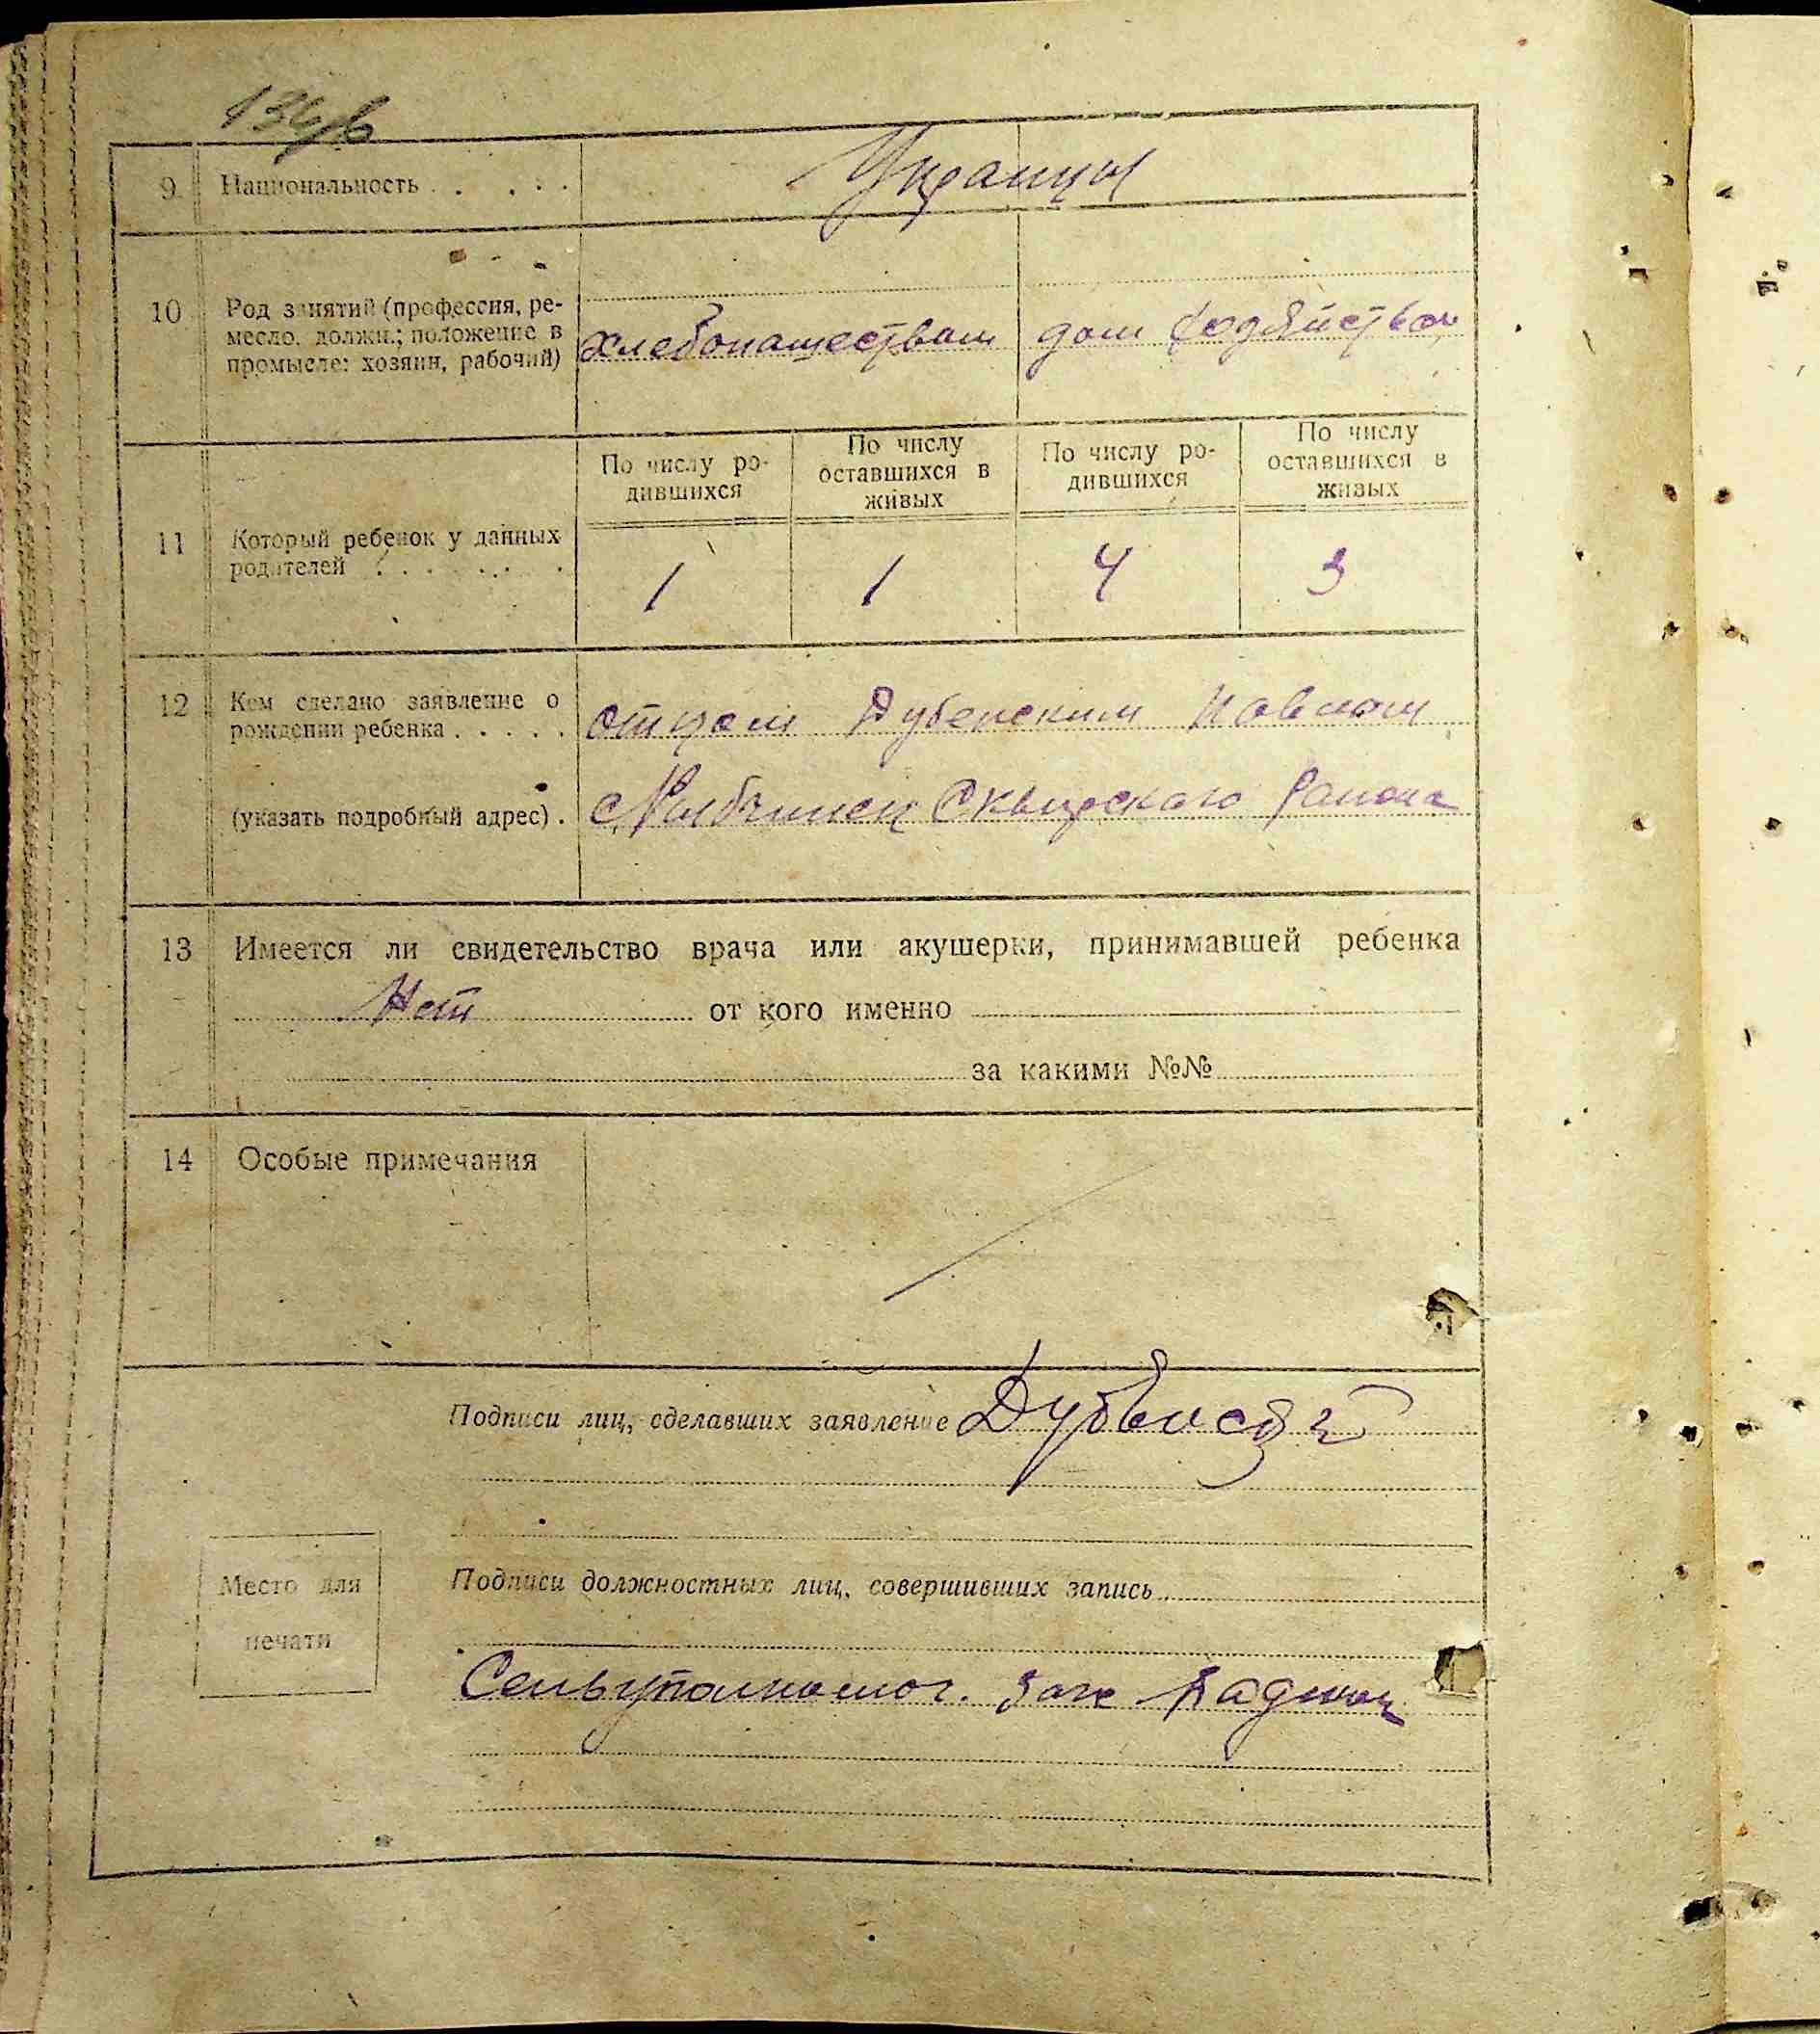 9 Национальность Украинцы
10 Род занятий (профессия, ре-
месло, должн.; положение в
промысле: хозяин, рабочий)
хлебопашеством дом хозяйством
По числу ро-
дившихся
По числу
оставшихся в
живых
По числу ро-
дившихся
По числу
оставшихся в
живых
11 Который ребенок у данных
родителей
1 1 4 3
12 Кем сделано заявление о
рождении ребенка
отцом Дубенским Павлом
(указать подробный адрес). Сквирского района
13 Имеется ли свидетельство врача или акушерки, принимавшей ребенка
Нет от кого именно
за какими №№
14 Особые примечания
Подписи лиц, сделавших заявление
Место для
печати
Подписи должностных лиц, совершивших запись
Сельуполномоч.